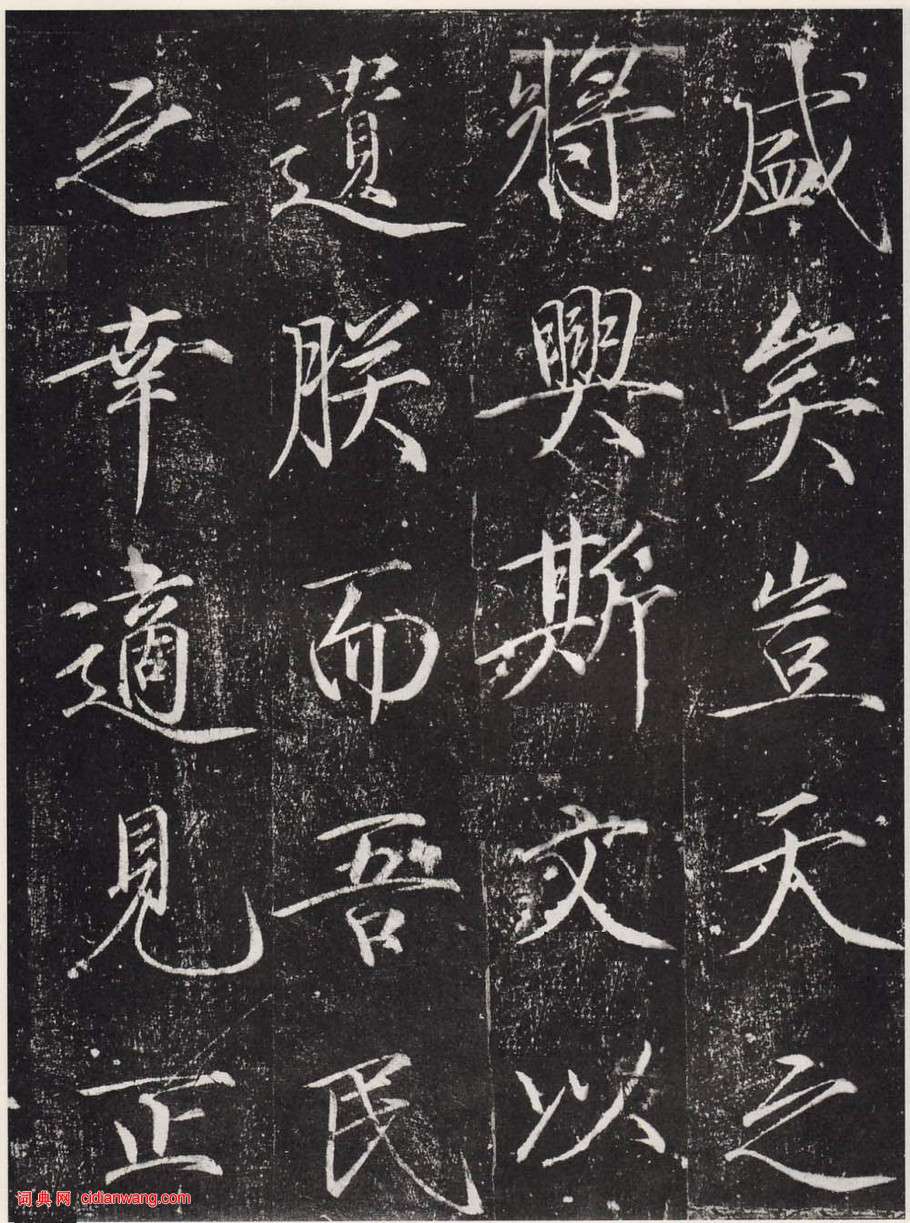 盛矣豈天之
將興斯文以
遺朕而吾民
之幸適見正
词典网 cidianwang.com